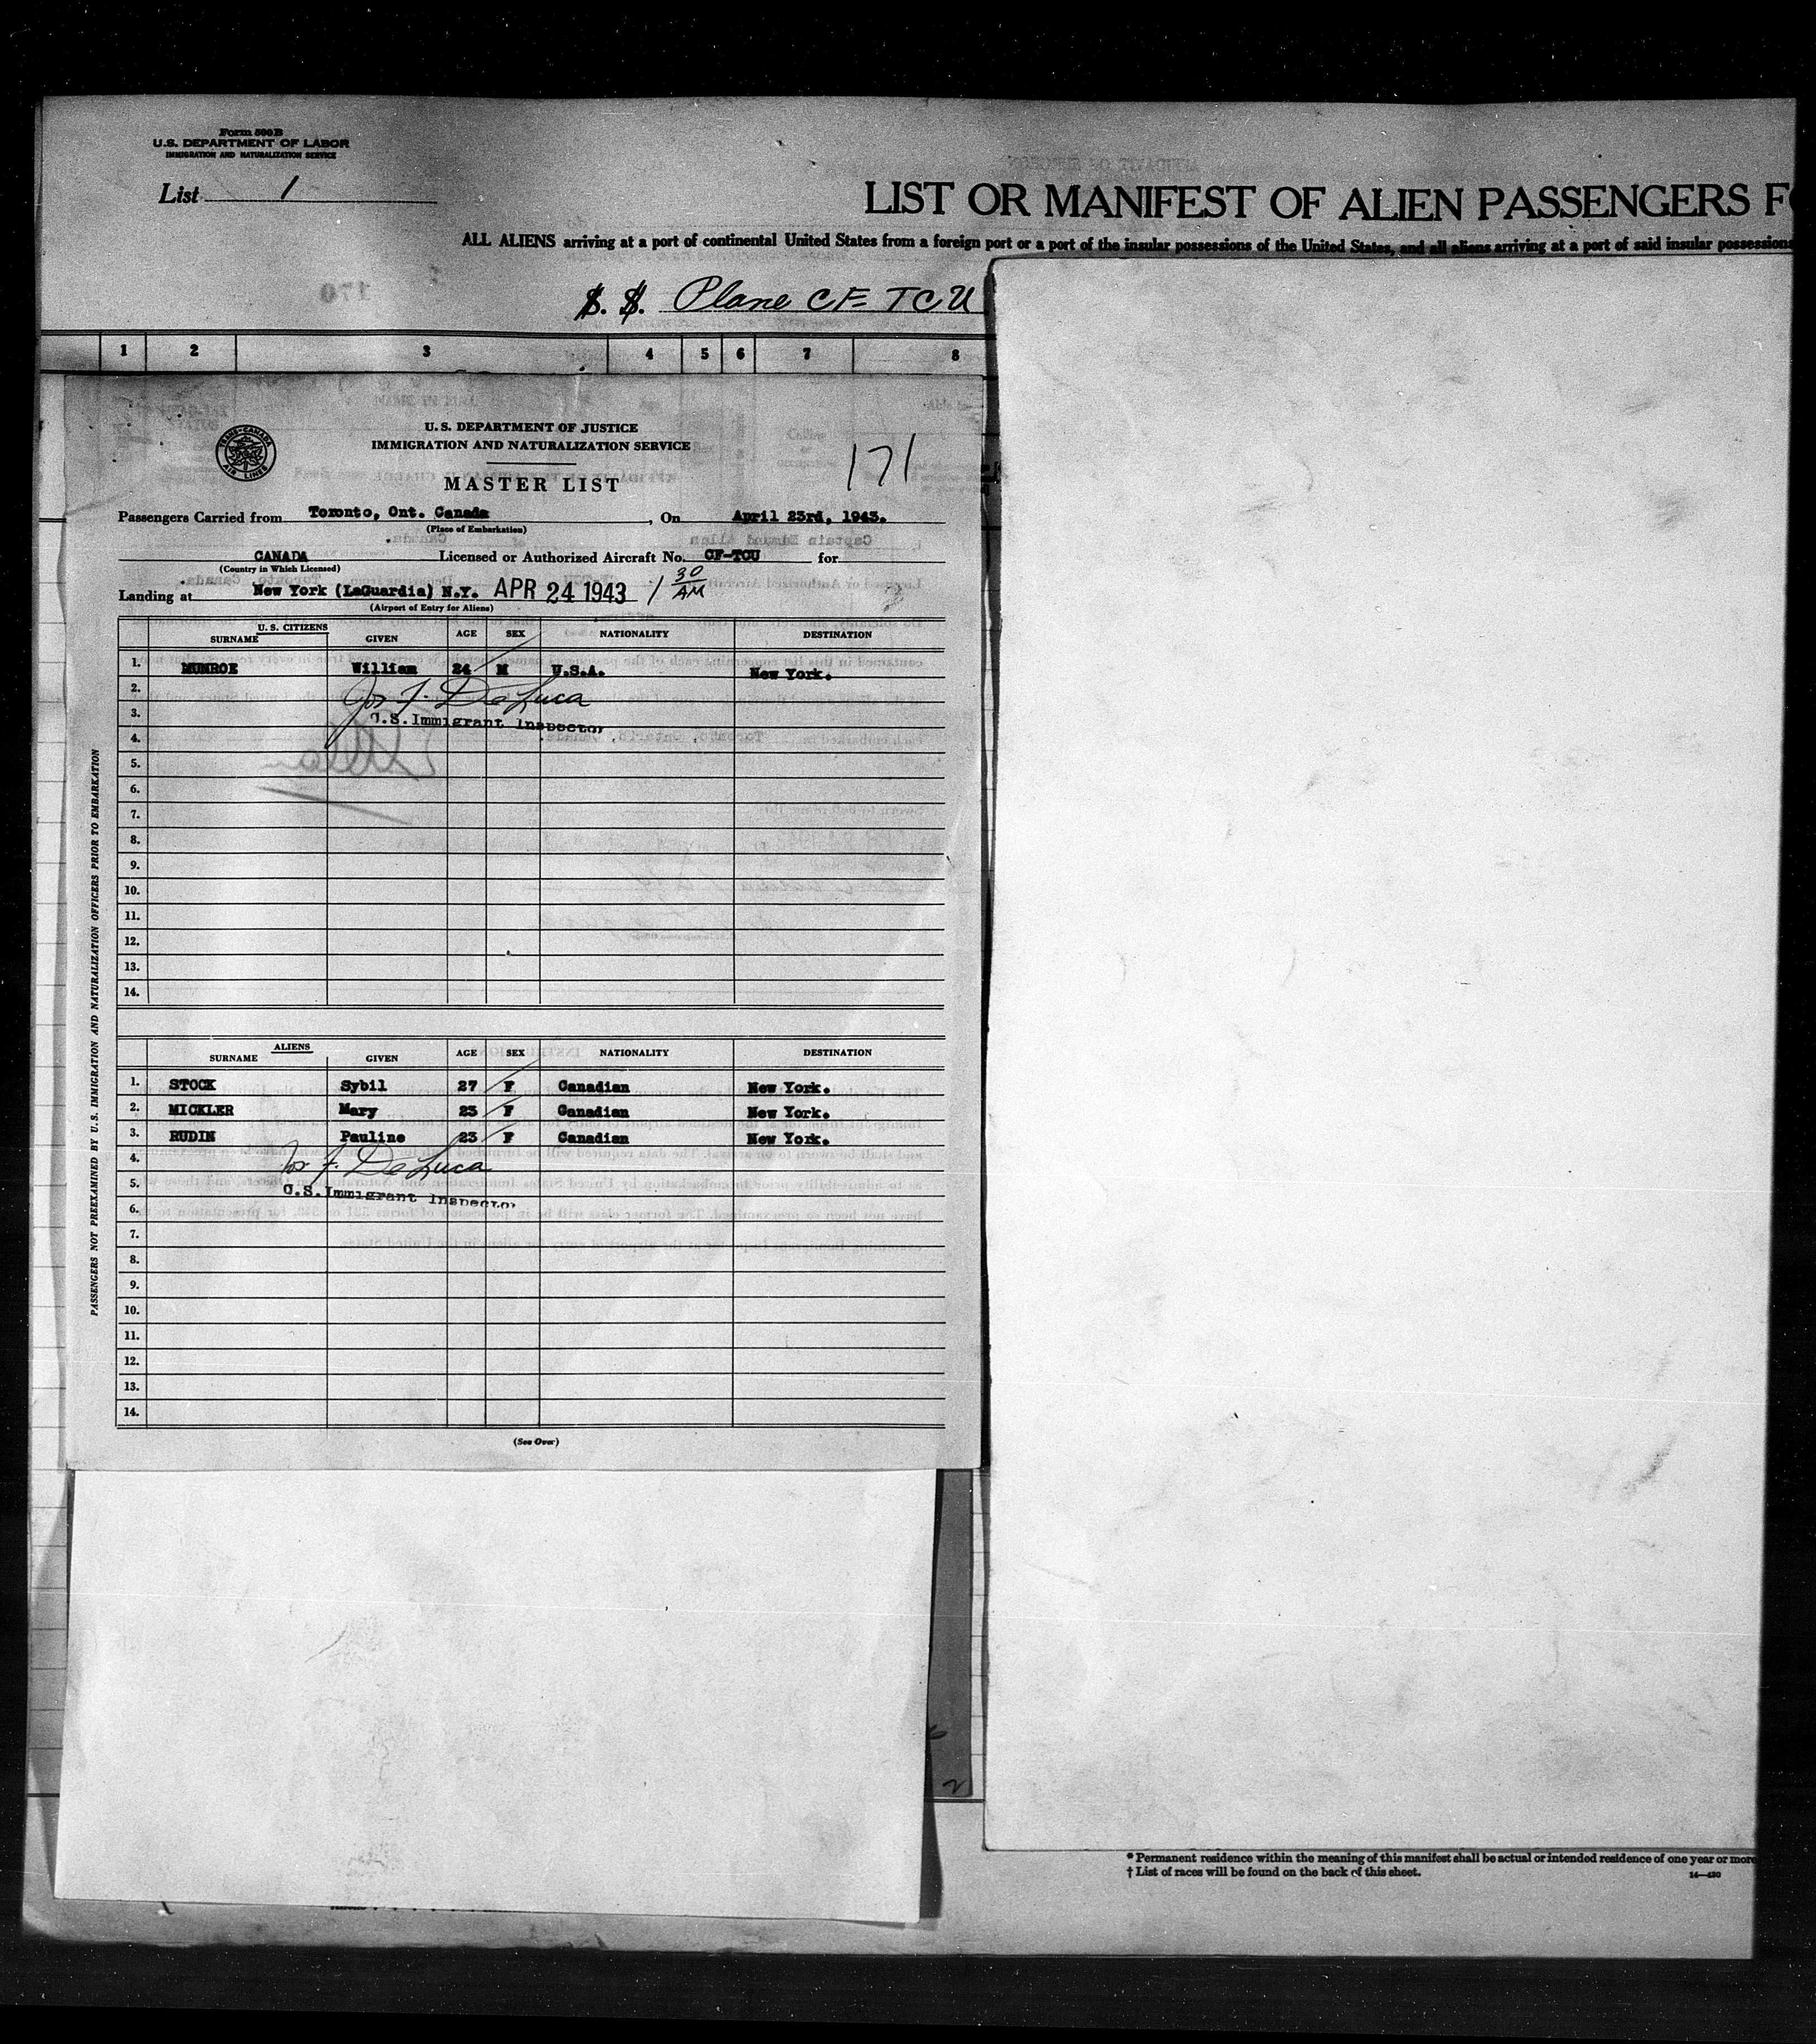 Form 500B
U.S. DEPARTMENT OF LABOR
IMMIGRATION AND NATURALIZATION SERVICE
List 1
LIST OR MANIFEST OF ALIEN PASSENGERS FO
ALL ALIENS arriving at a port of continental United States from a foreign port or a port of the insular possessions of the United States, and all aliens arriving at a port of said insular possessions
S. S. Plane CF-TCU
1 2 3 4 5 6 7 8
TRANS-CANADA AIR LINES
U.S. DEPARTMENT OF JUSTICE
IMMIGRATION AND NATURALIZATION SERVICE
171
MASTER LIST
Passengers Carried from Toronto, Ont. Canada, On April 23rd, 1943.
(Place of Embarkation)
CANADA Licensed or Authorized Aircraft No. CF-TCU for
(Country in Which Licensed)
Landing at New York (LaGuardia) N.Y. APR 24 1943 1 30 AM
(Airport of Entry for Aliens)
U.S. CITIZENS
SURNAME GIVEN AGE SEX NATIONALITY DESTINATION
1. MUNROE William 24 M U.S.A. New York.
2. Jos F. DeLuca
3. U.S. Immigrant Inspector
4.
5.
6.
7.
8.
9.
10.
11.
12.
13.
14.
ALIENS
SURNAME GIVEN AGE SEX NATIONALITY DESTINATION
1. STOCK Sybil 27 F Canadian New York.
2. MICKLER Mary 23 F Canadian New York.
3. RUDIN Pauline 23 F Canadian New York.
4. Jos F. DeLuca
5. U.S. Immigrant Inspector
6.
7.
8.
9.
10.
11.
12.
13.
14.
(See Over)
PASSENGERS NOT PREEXAMINED BY U.S. IMMIGRATION AND NATURALIZATION OFFICERS PRIOR TO EMBARKATION
* Permanent residence within the meaning of this manifest shall be actual or intended residence of one year or more
† List of races will be found on the back of this sheet.
14—430